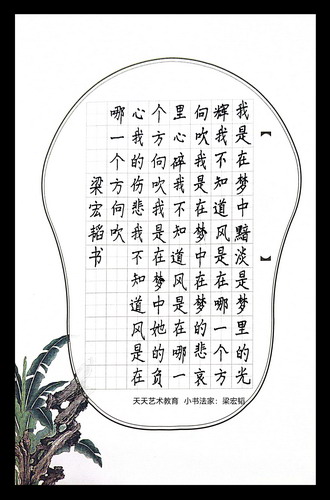 【 】
我是在梦中黯淡是梦里的光
辉我不知道风是在哪一个方
向吹我是在梦中在梦的悲哀
里心碎我不知道风是在哪一
个方向吹我是在梦中她的负
心我的伤悲我不知道风是在
哪一个方向吹
梁宏韬书
天天艺术教育 小书法家：梁宏韬